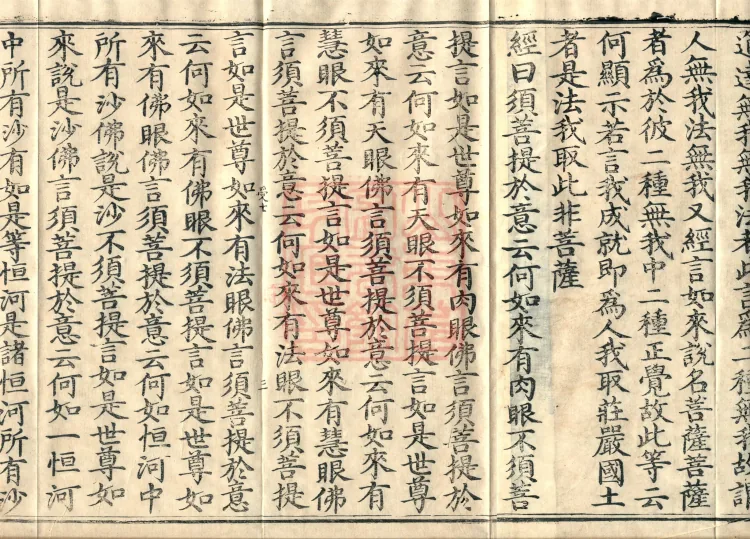 人無我法無我又經言如來說名菩薩菩薩
者爲於彼二種無我中二種正覺故此等云
何顯示若言我成就即爲人我取莊嚴國土
者是法我取此非菩薩
經曰須菩提於意云何如來有肉眼不須菩
提言如是世尊如來有肉眼佛言須菩提於
意云何如來有天眼不須菩提言如是世尊
如來有天眼佛言須菩提於意云何如來有
慧眼不須菩提言如是世尊如來有慧眼佛
言須菩提於意云何如來有法眼不須菩提
言如是世尊如來有法眼佛言須菩提於意
云何如來有佛眼不須菩提言如是世尊如
來有佛眼佛言須菩提於意云何如恒河中
所有沙佛說是沙不須菩提言如是世尊如
來說是沙佛言須菩提於意云何如一恒河
中所有沙有如是等恒河是諸恒河所有沙